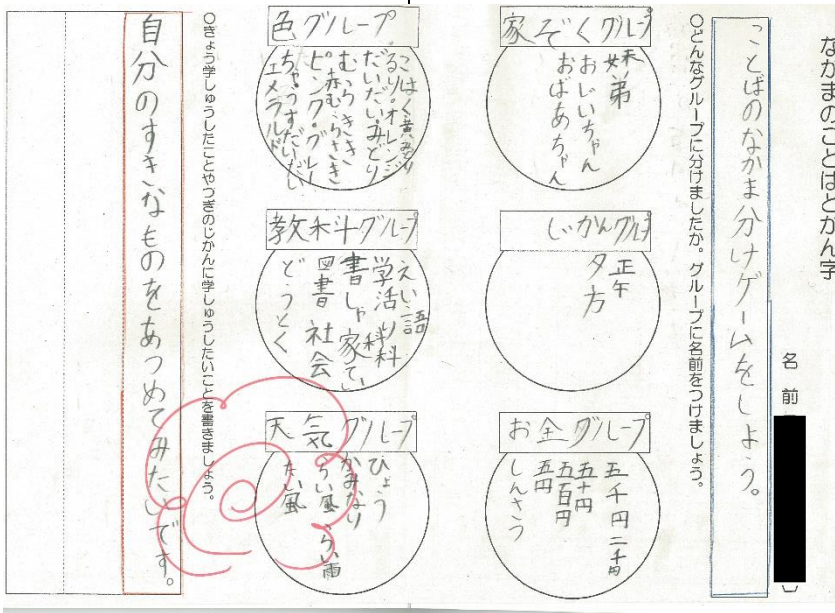 なかまのことばとかん字
名前
ことばのなかま分けゲームをしよう。
○どんなグループに分けましたか。グループに名前をつけましょう。
家ぞくグループ
妹弟
おじいちゃん
おばあちゃん
じかんグループ
正午
夕方
お金グループ
五千円 二千円
五十円
五百円
五円
しんさつ
色グループ
こはく 黄みどり
るり。オレンジ
だいだいみどり
むらさき
赤むらさき
ピンクグレー
ちゃうすだいだい
エメラルド
教科グループ
えい語
学活 り科
書しゃ 家てい科
図書 社会
どうとく
天気グループ
ひょう
かみなり
らい風 らい雨
たい風
○きょう学しゅうしたことやつぎのじかんに学しゅうしたいことを書きましょう。
自分のすきなものをあつめてみたいです。